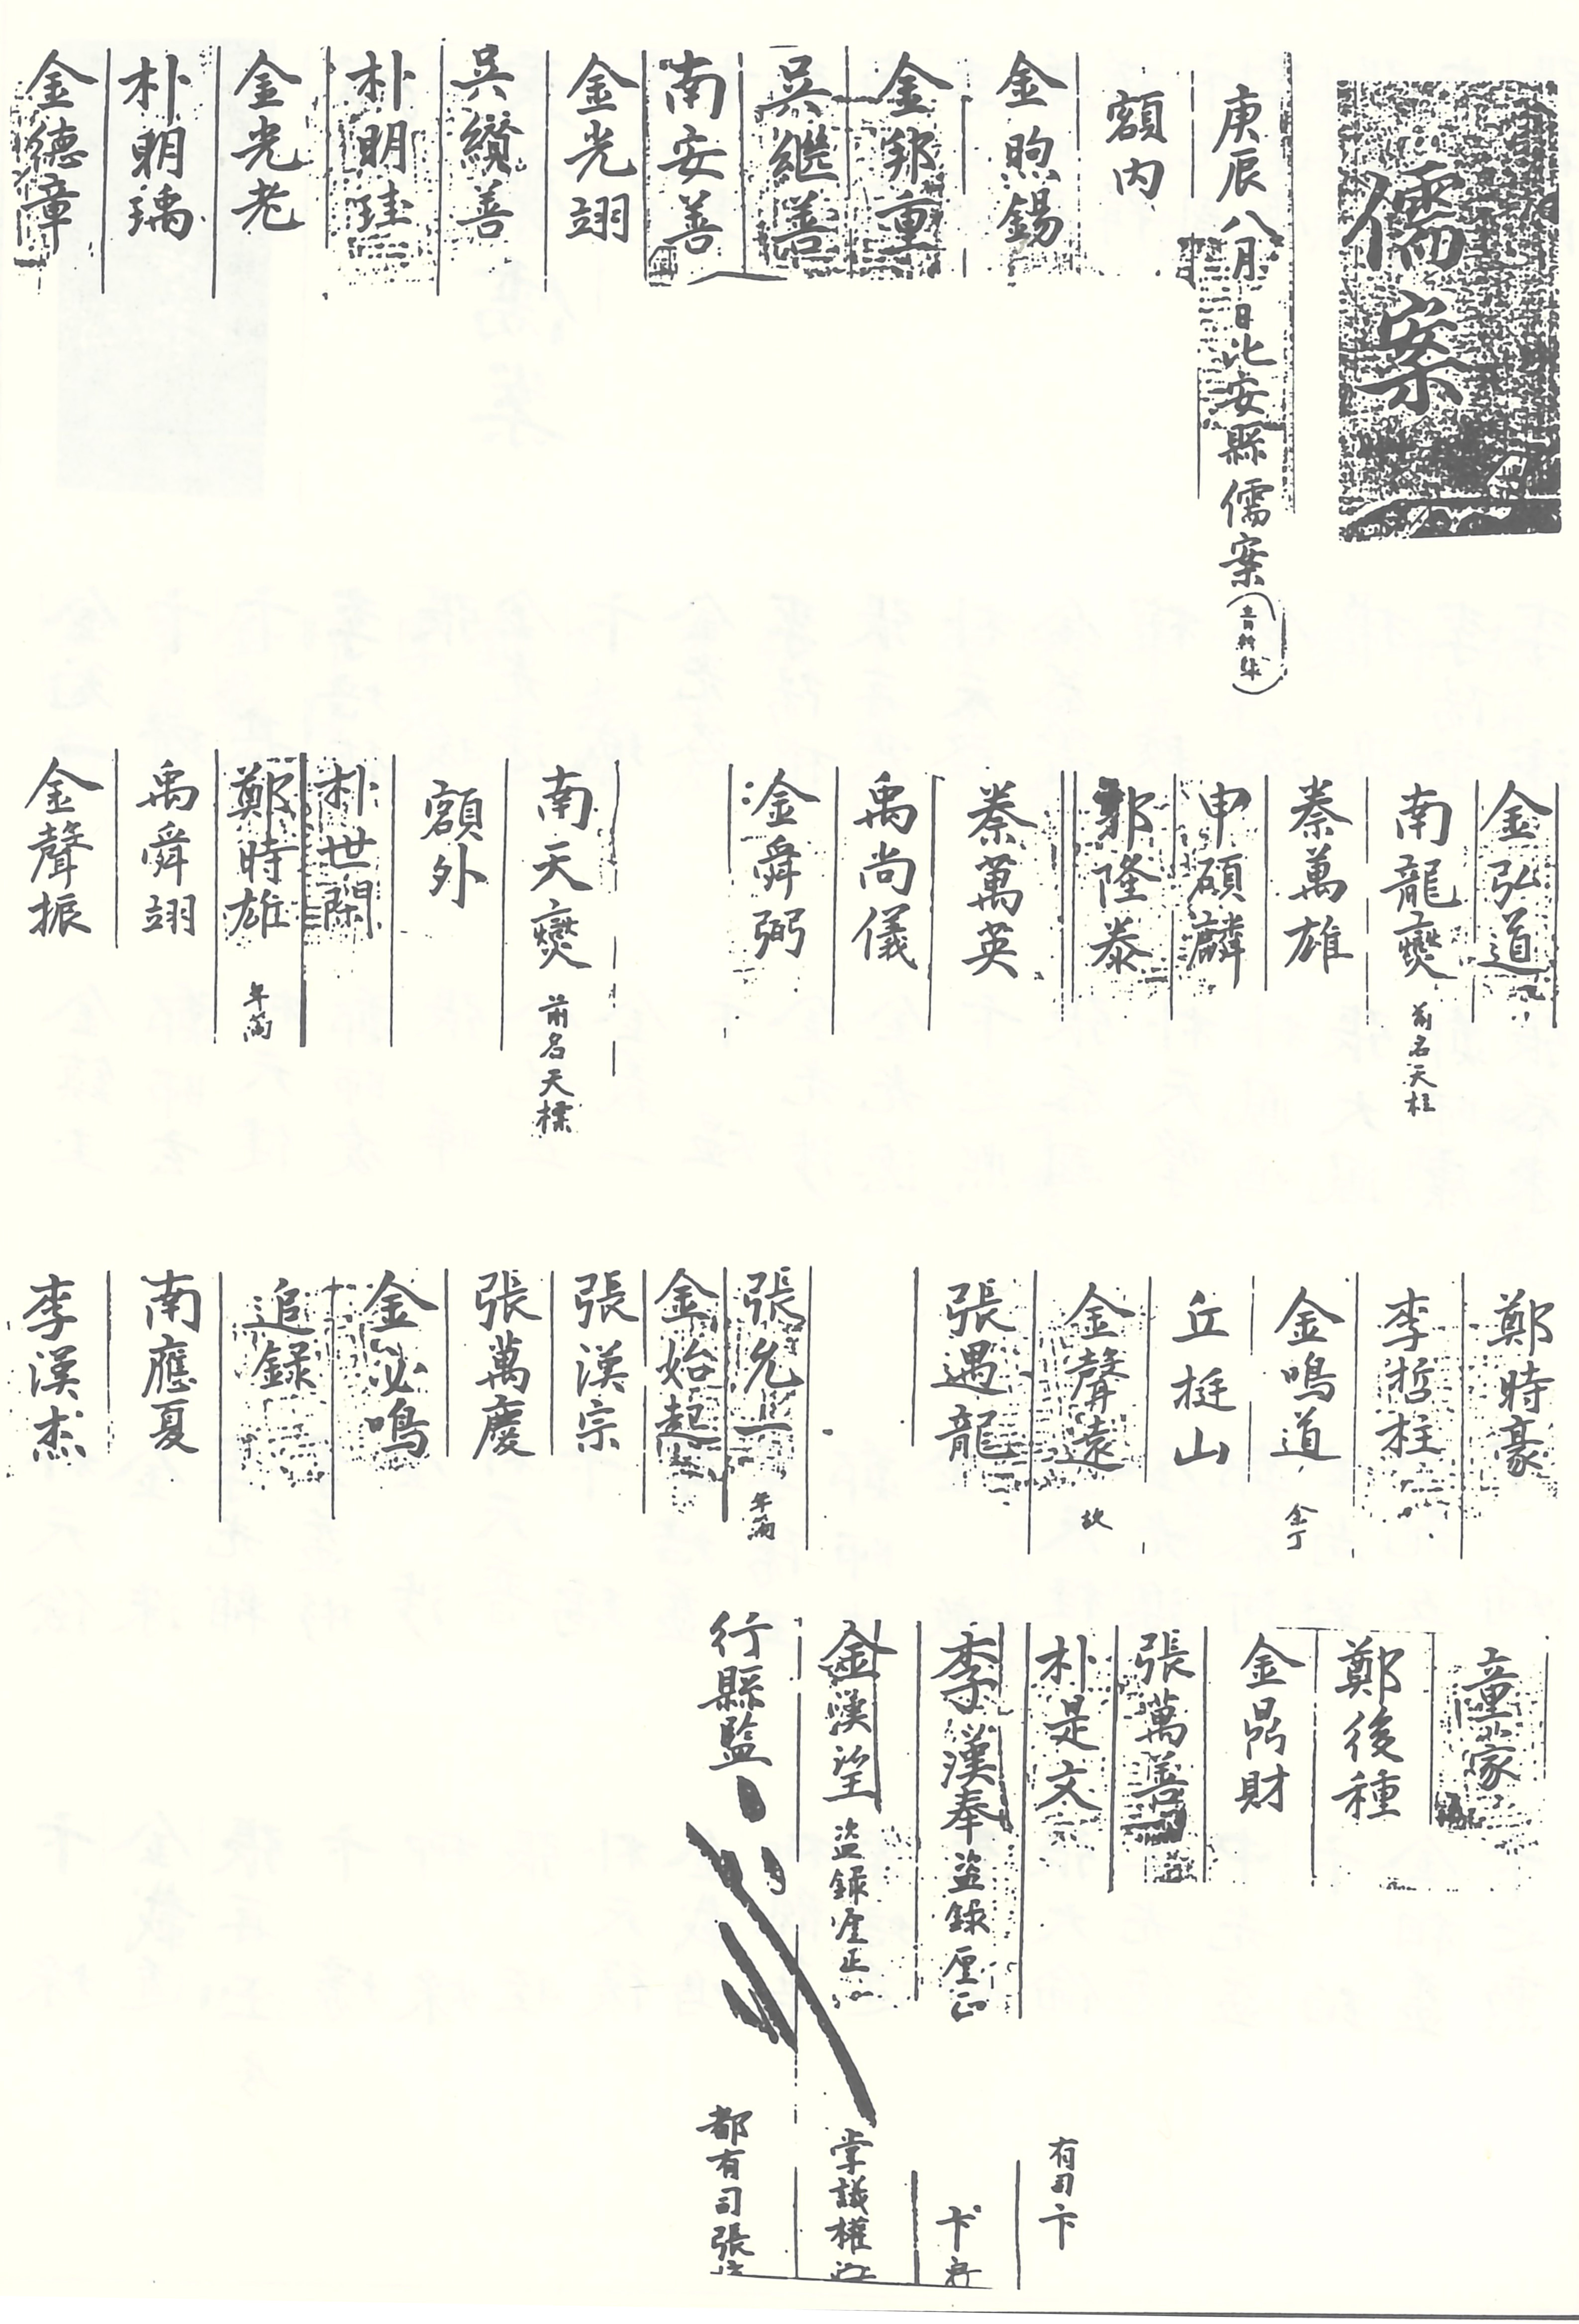 儒案
庚辰八月日比安縣儒案
額內
金煦錫
金邦重
吳繼善
南安善
金光翊
吳纘善
朴明珪
金光老
朴明瑀
金德章
金弘道
南龍燮 前名天柱
秦萬雄
申碩麟
郭隆泰
秦萬英
禹尚儀
金舜弼
南天燮 前名天標
額外
朴世閑
鄭時雄
禹舜翊
金聲振
鄭時豪
李哲柱
金鳴道
丘挺山
金聲遠 故
張遇龍
張允一
金始起
張漢宗
張萬慶
金必鳴
追錄
南應夏
李漢杰
童蒙
鄭後種
金昂財
張萬善
朴是文
李漢奉 盜錄厘正
金漢望 盜錄厘正
行縣監
有司卞
卞
掌議權
都有司張